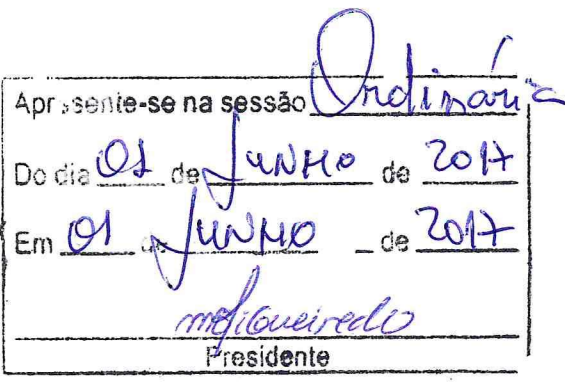 Apresente-se na sessão Ordinária
Do dia 01 de Junho de 2017
Em 01 de Junho de 2017
mfigueiredo
Presidente